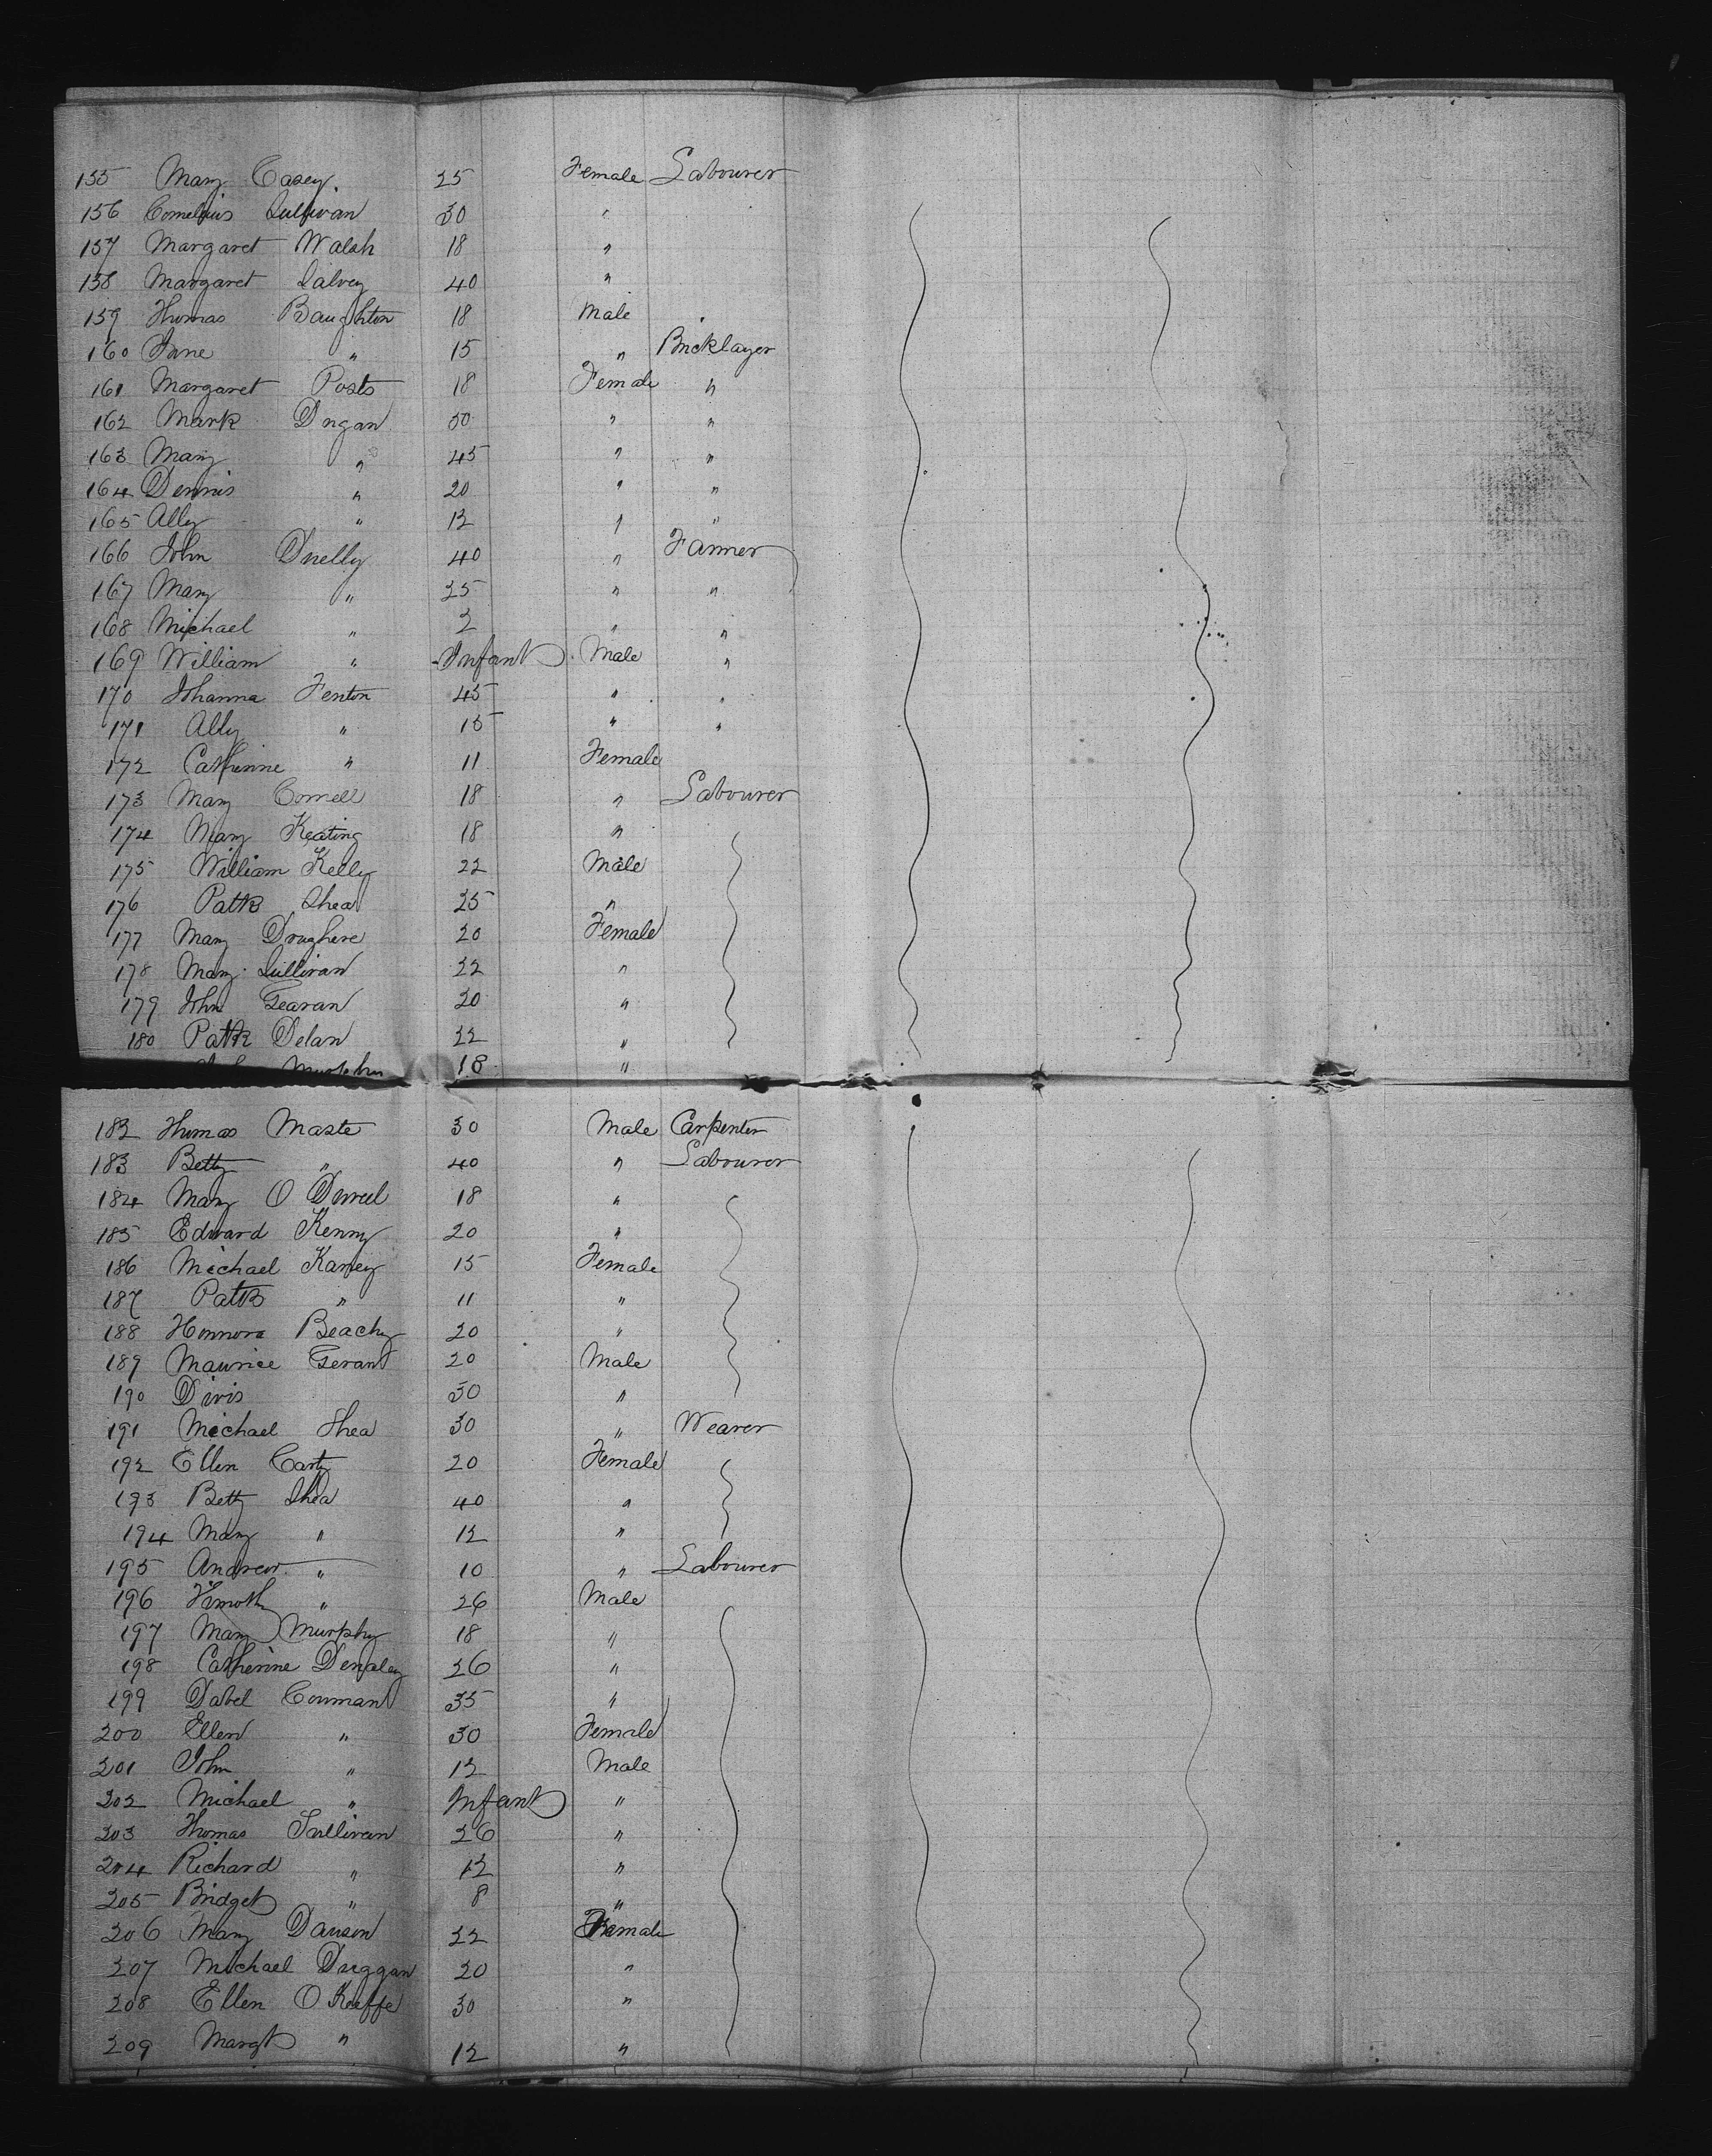 155 Mary Casey 25 Female Labourer
156 Cornelius Sullivan 30 "
157 Margaret Walsh 18 "
158 Margaret Salvey 40 "
159 Thomas Baughton 18 Male "
160 Jane " 15 " Bricklayer
161 Margaret Posts 18 Female "
162 Mark Dugan 50 " "
163 Mary " 45 " "
164 Dennis " 20 " "
165 Ally " 12 " "
166 John Dnelly 40 " Farmer
167 Mary " 25 " "
168 Michael " 2 " "
169 William " Infant Male "
170 Johanna Fenton 45 " "
171 Ally " 15 " "
172 Catherine " 11 Female
173 Mary Connell 18 " Labourer
174 Mary Keating 18 "
175 William Kelly 22 Male
176 Patk Shea 25 "
177 Mary Droghere 20 Female
178 Mary Sullivan 22 "
179 John Gearan 20 "
180 Patk Delan 22 "
Murphy 18 "
182 Thomas Maste 30 Male Carpenter
183 Betty " 40 " Labourer
184 Mary O Dnneel 18 "
185 Edward Kenny 20 "
186 Michael Kaney 15 Female
187 Patk " 11 "
188 Honnora Beachy 20 "
189 Maurice Geran 20 Male
190 Divis 50 "
191 Michael Shea 30 " Weaver
192 Ellen Carty 20 Female
193 Betty Shea 40 "
194 Mary " 12 "
195 Andrew " 10 " Labourer
196 Timothy " 26 Male
197 Mary Murphy 18 "
198 Catherine Denaley 26 "
199 Datel Counan 35 "
200 Ellen " 30 Female
201 John " 12 Male
202 Michael " Infant "
203 Thomas Sullivan 26 "
204 Richard " 12 "
205 Bridget " 8 "
206 Mary Dauson 22 Female
207 Michael Duggan 20 "
208 Ellen O Keeffe 30 "
209 Margt " 12 "